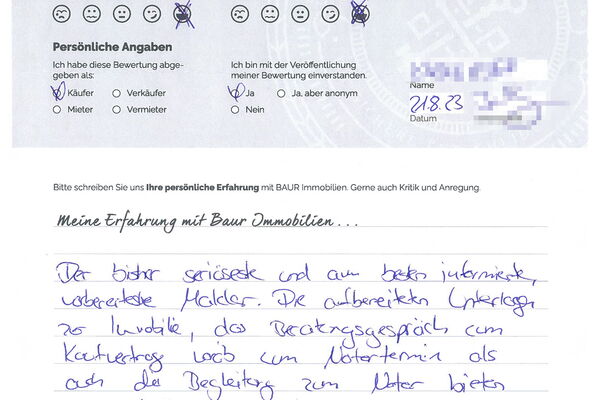 Persönliche Angaben
Ich habe diese Bewertung abge-
geben als:
Käufer Verkäufer
Mieter Vermieter
Ich bin mit der Veröffentlichung
meiner Bewertung einverstanden.
Ja Ja, aber anonym
Nein
Name
21.8.23
Datum
Bitte schreiben Sie uns Ihre persönliche Erfahrung mit BAUR Immobilien. Gerne auch Kritik und Anregung.
Meine Erfahrung mit Baur Immobilien...
Der bisher seriöseste und am besten informierte,
vorbereiteste Makler. Die aufbereiteten Unterlagen
zur Immobilie, das Beratungsgespräch zum
Kaufvertrag zum Notartermin als
auch die Begleitung zum Notar bieten